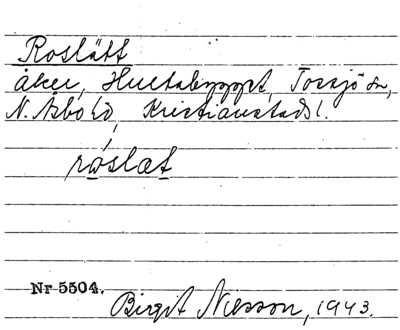 Roslätt
åker, Hultabygget, Tossjö sn,
N. Åsbo hd, Kristianstads l.
røslæt
Nr 5504.
Birgit Nilsson, 1943.